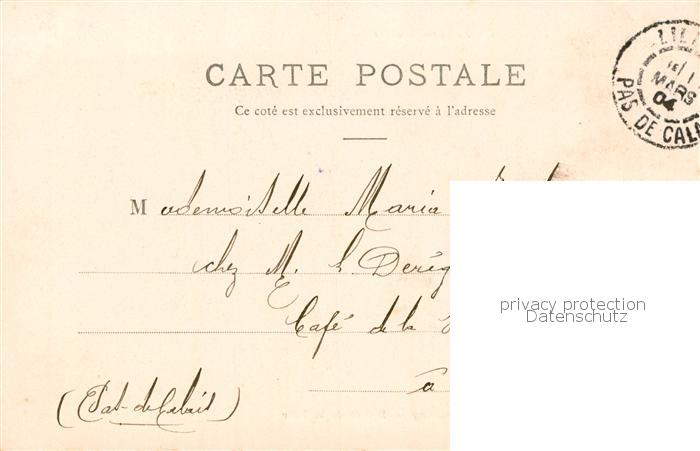 CARTE POSTALE
Ce coté est exclusivement réservé à l'adresse
LILL
MARS
04
PAS DE CALA
Mademoiselle Maria
chez M. L. Derég
Café de la
a
(Pas-de-Calais)
privacy protection
Datenschutz